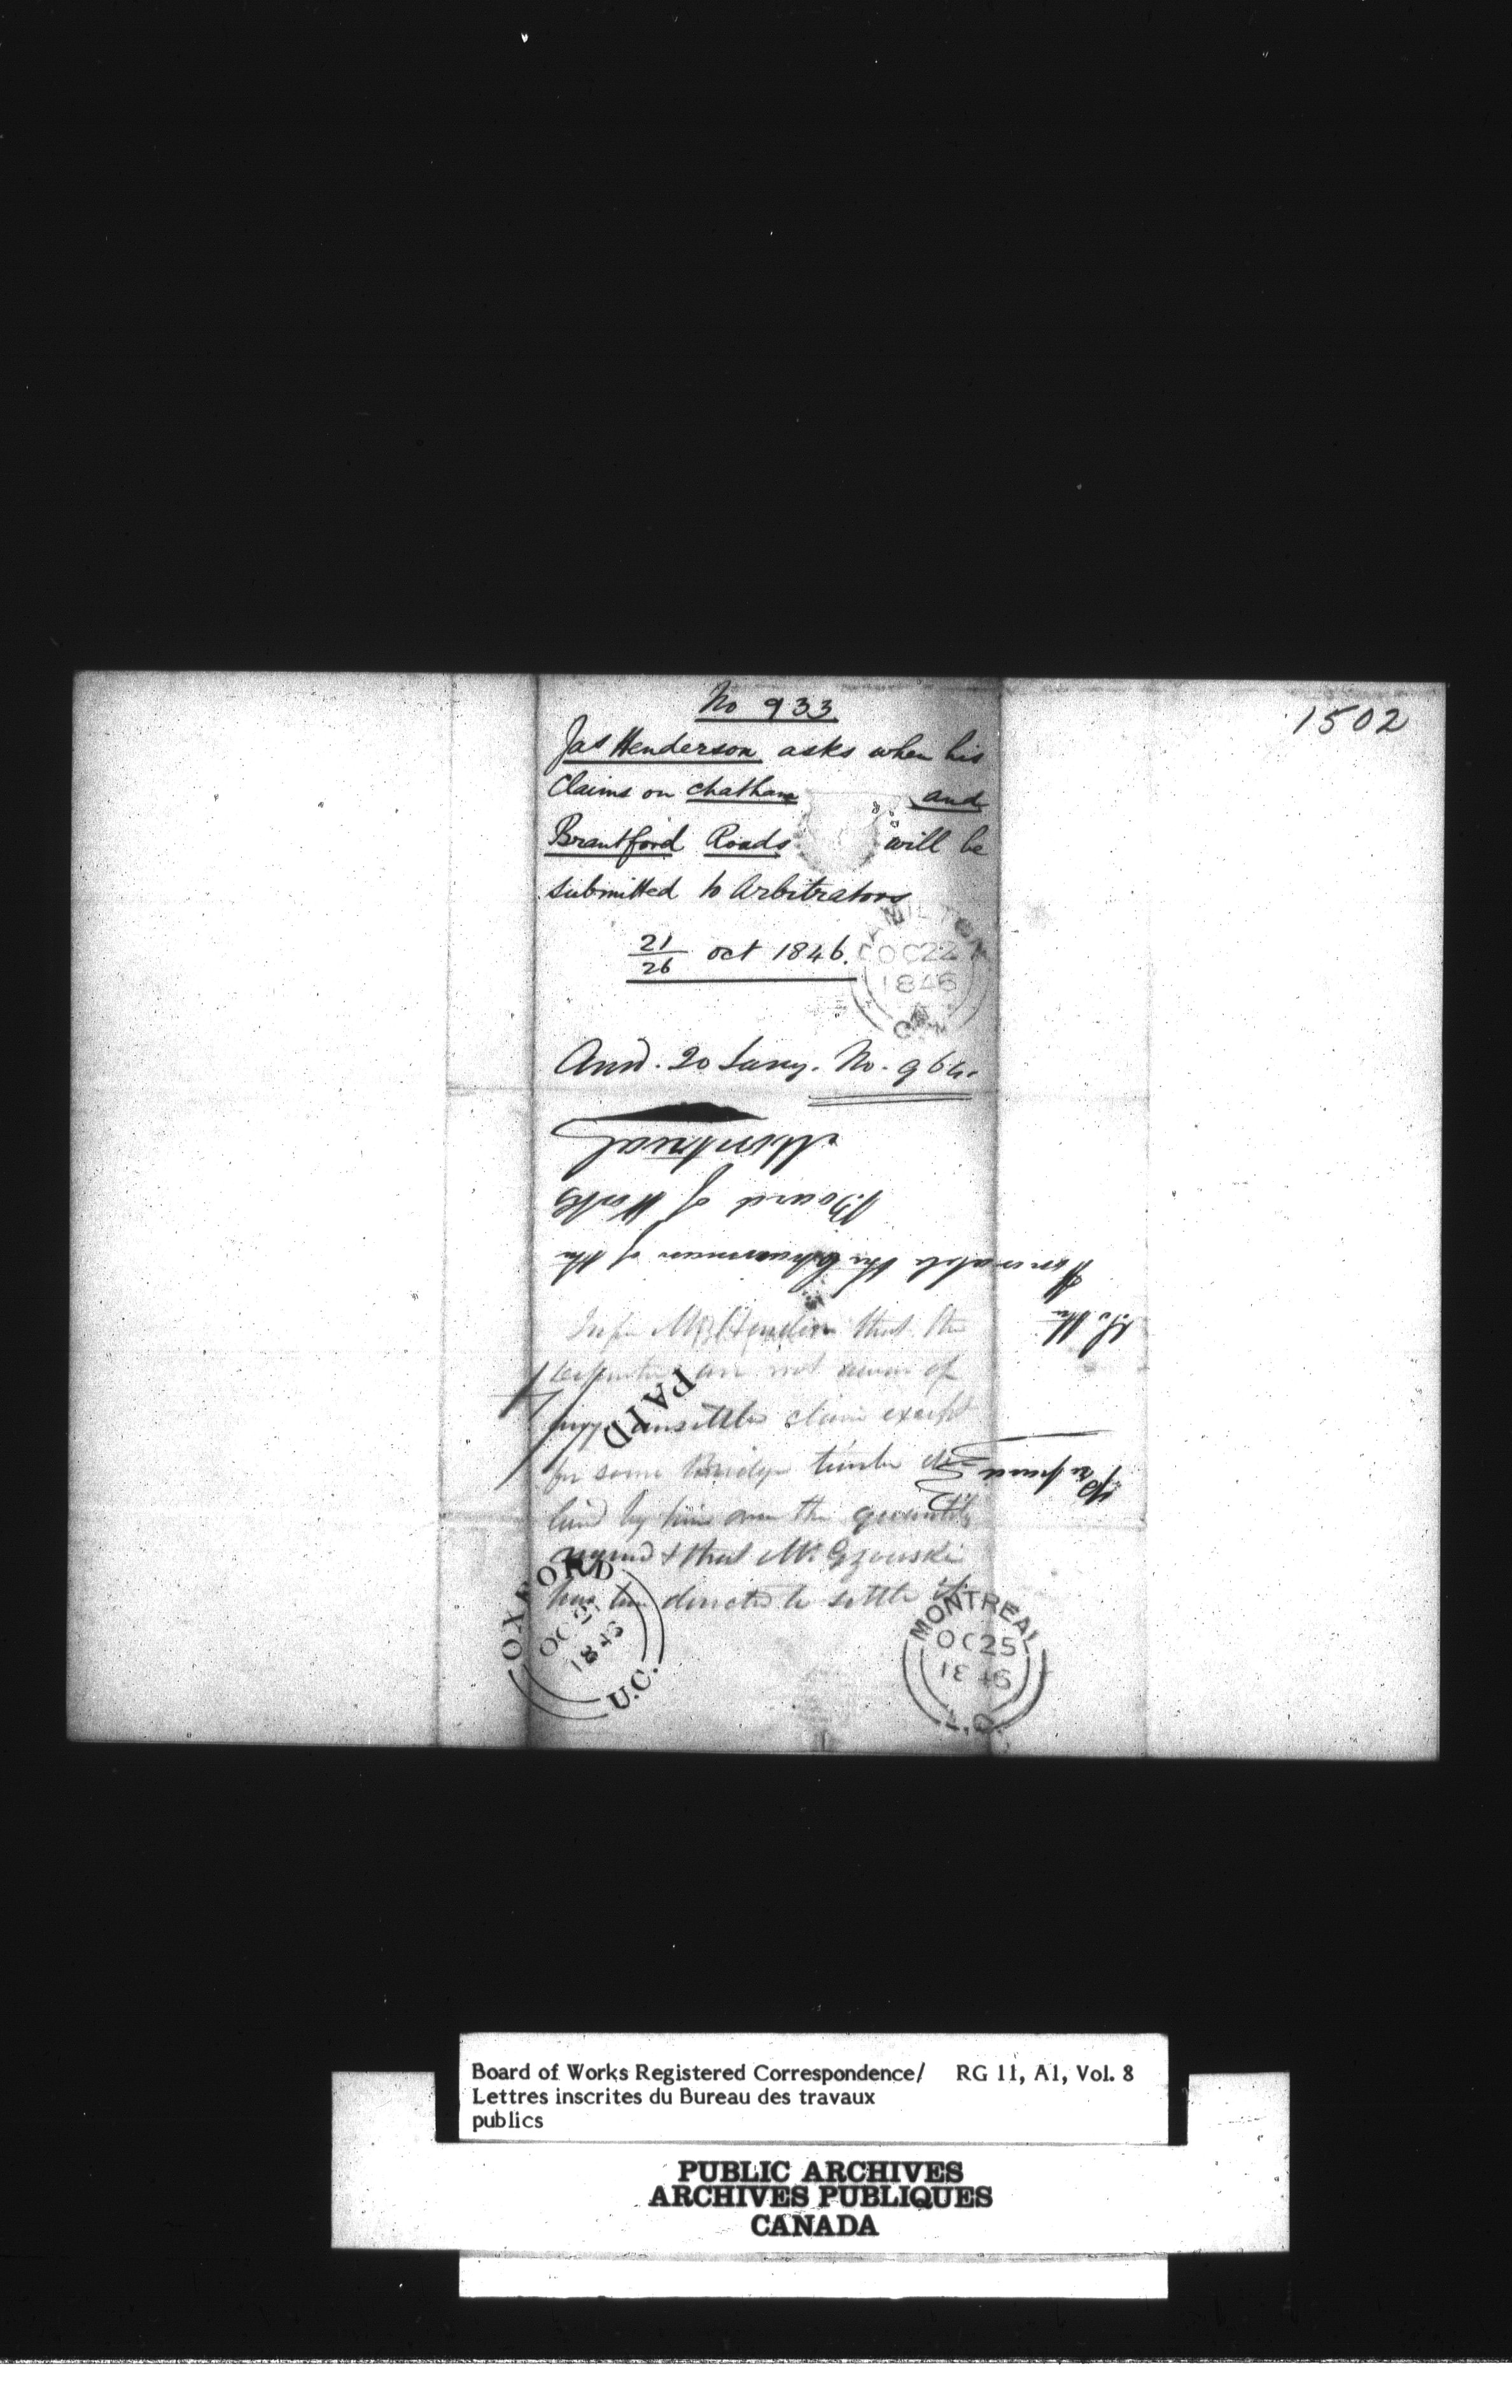 1502
No 933
Jas Henderson asks when his
Claims on Chatham and
Brantford Roads will be
submitted to Arbitrators
21/26 Oct 1846.
HAMILTON
OC 22
1846
Answd. 20 Jany. No. 964.
To the
Honorable the Chairman of the
Board of Works
Montreal
PAID
Inform Mr Henderson that the
Department are not aware of
any unsettled claim except
for some Bridge timber
by him over the quantity
required & that Mr. Gzowski
has been directed to settle it.
OXFORD
OC 21
1846
U.C.
MONTREAL
OC 25
1846
L.C.
Board of Works Registered Correspondence/ RG 11, A1, Vol. 8
Lettres inscrites du Bureau des travaux
publics
PUBLIC ARCHIVES
ARCHIVES PUBLIQUES
CANADA